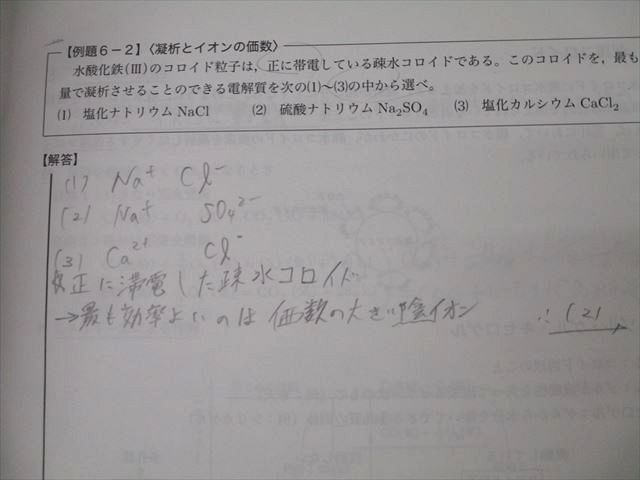 【例題6-2】〈凝析とイオンの価数〉
水酸化鉄(Ⅲ)のコロイド粒子は，正に帯電している疎水コロイドである。このコロイドを，最も
量で凝析させることのできる電解質を次の(1)~(3)の中から選べ。
(1) 塩化ナトリウム NaCl (2) 硫酸ナトリウム Na₂SO₄ (3) 塩化カルシウム CaCl₂
【解答】
(1) Na⁺ Cl⁻
(2) Na⁺ SO₄²⁻
(3) Ca²⁺ Cl⁻
正に帯電した疎水コロイド
→最も効率よいのは価数の大きい陰イオン ∴(2)